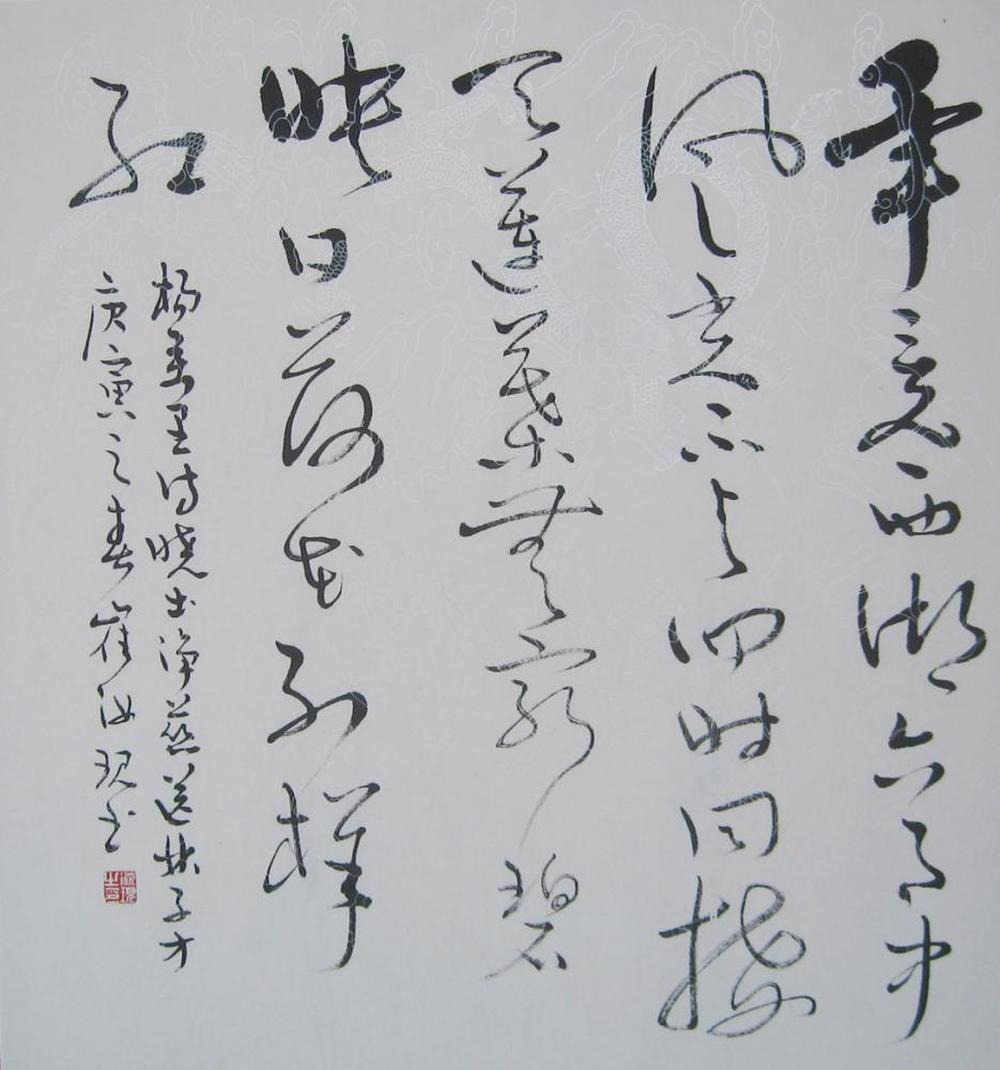 畢竟西湖六月中
風光不与四時同接
天蓮葉無窮碧
映日荷花別樣
紅
楊萬里詩曉出淨慈送林子方
庚寅之春崔书